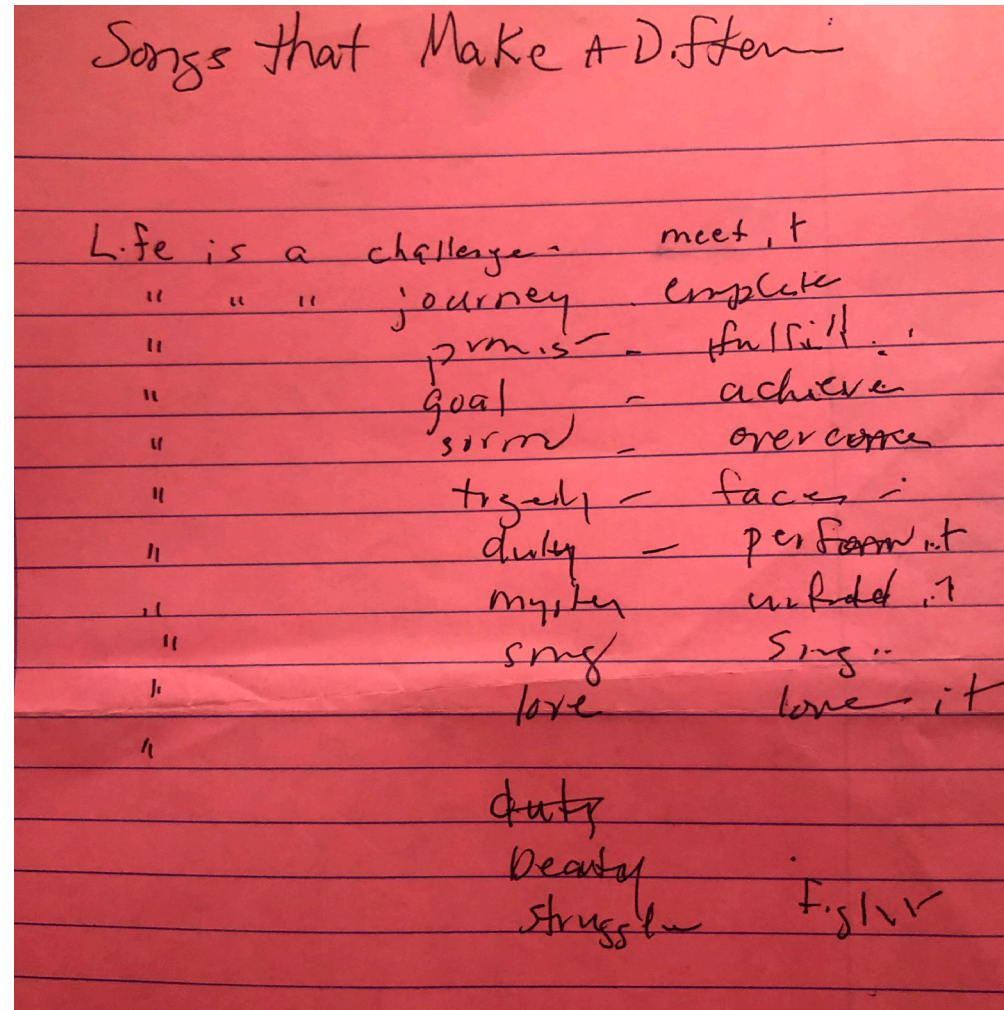 Songs that Make A Differen
Life is a challenge - meet it
" " " journey - complete
" promise - fulfill it
" goal - achieve
" sorrow - overcome
" tragedy - face it
" duty - perform it
" mystery unfold it
" song Sing it
" love love it
"
duty
beauty
struggle fight it